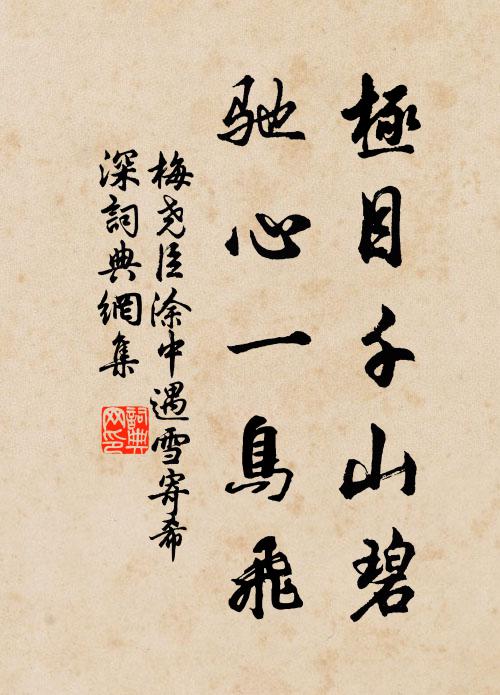 極目千山碧
馳心一鳥飛
梅堯臣涂中遇雪寄希
深詞典網集
詞典网印